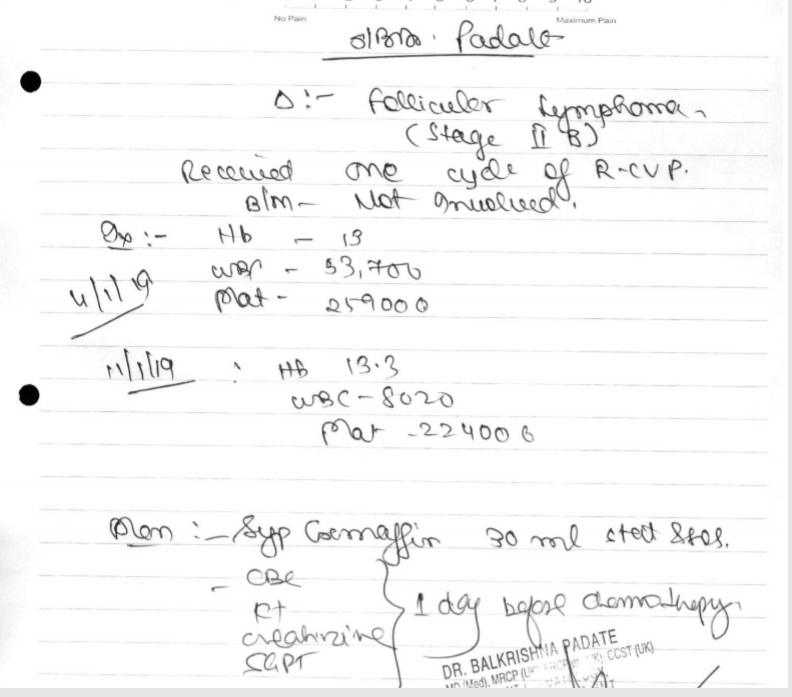 No Pain Maximum Pain
Padate
Δ :- Follicular Lymphoma
(Stage II B)
Received one cycle of R-CVP.
B/M - Not Involved.
Ix :- Hb - 13
WBC - 53,700
4/1/19 Plat - 259000
11/1/19 : HB 13.3
WBC - 8020
Plat - 224000
Plan :- Syp Cremaffin 30 ml stat & sos.
- CBC
creatinine
SGPT
1 day before chemotherapy.
DR. BALKRISHNA PADATE
MD (Med), MRCP CCST (UK)